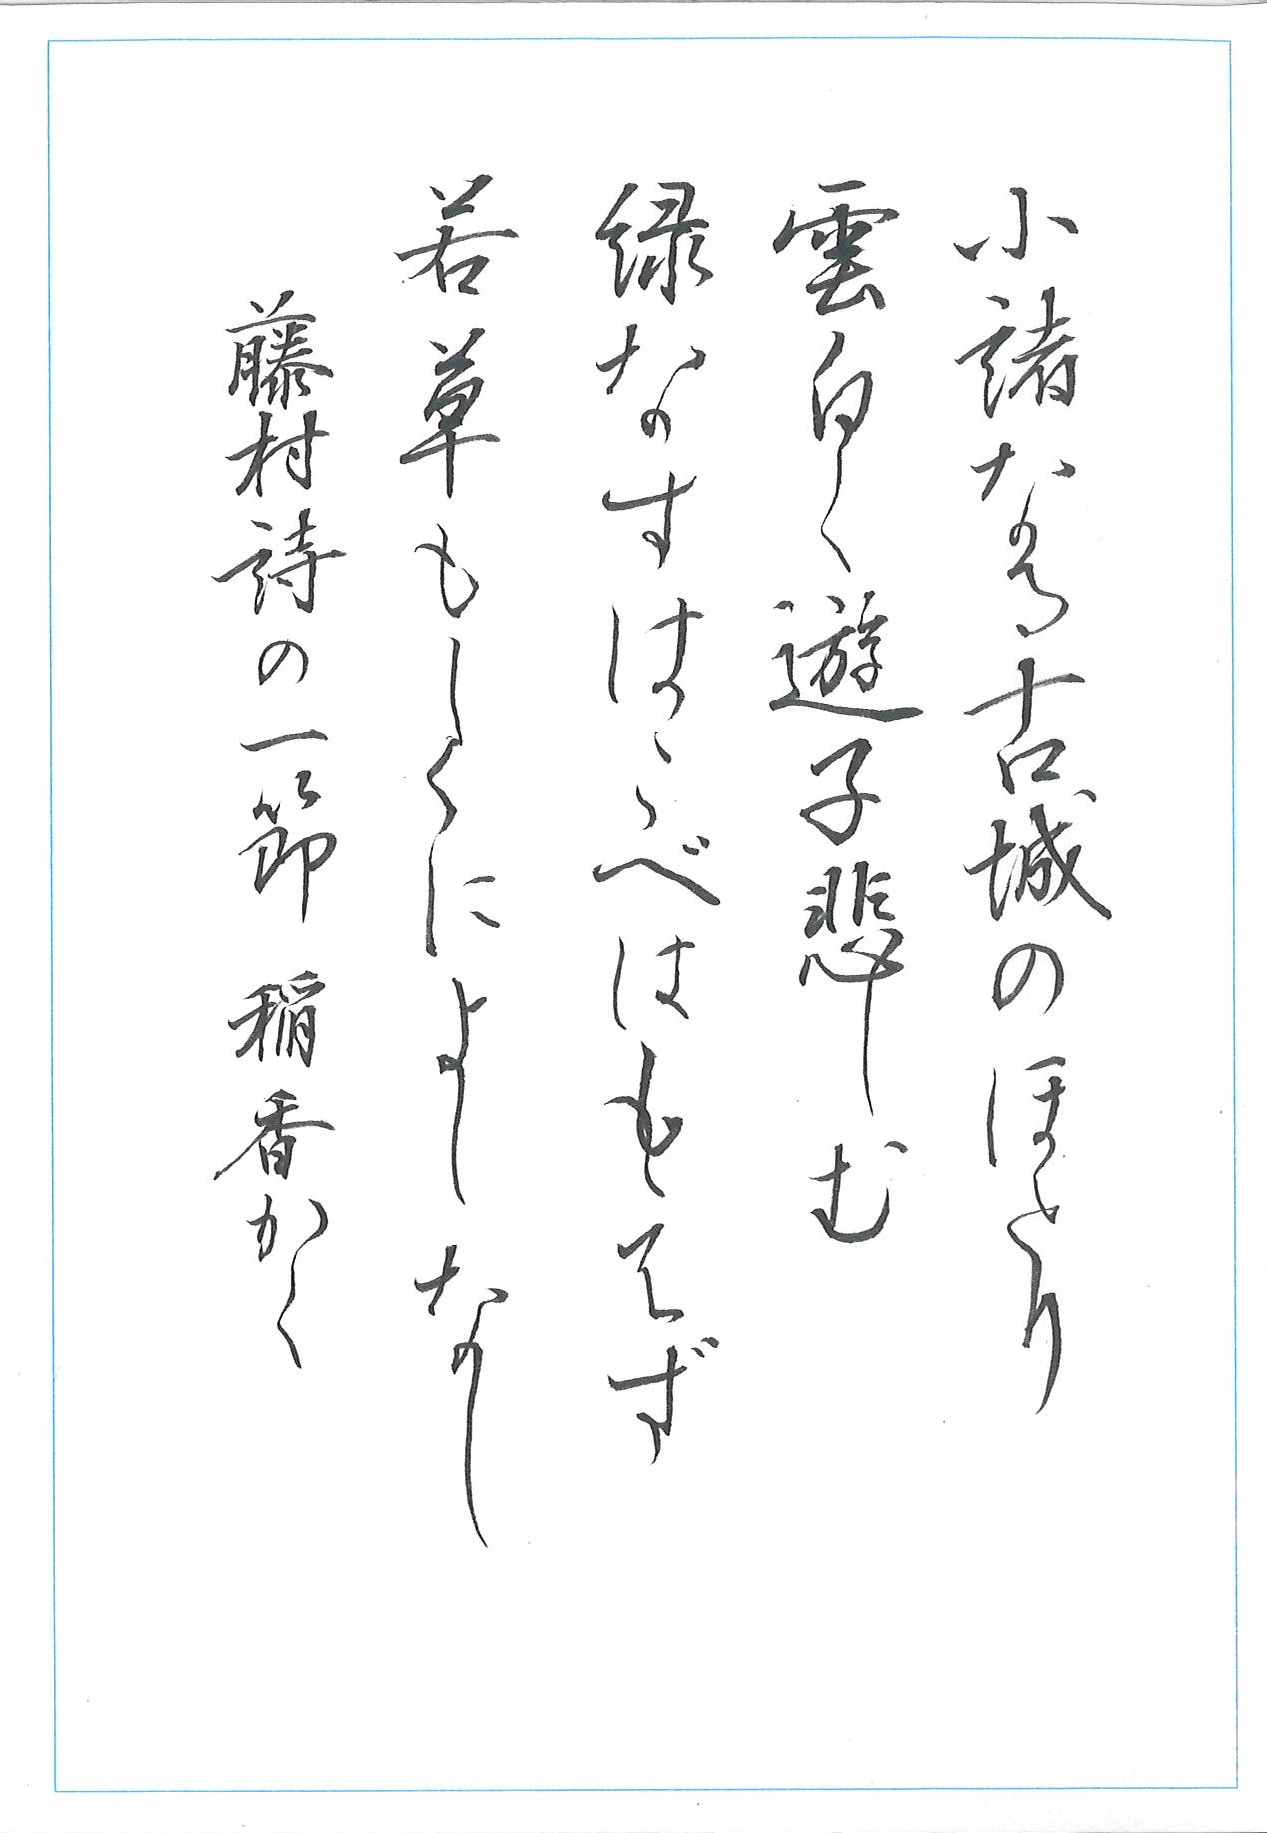 小諸なる古城のほとり
雲白く遊子悲しむ
緑なすはこべはもえず
若草もしくによしなし
藤村詩の一節 稲香かく